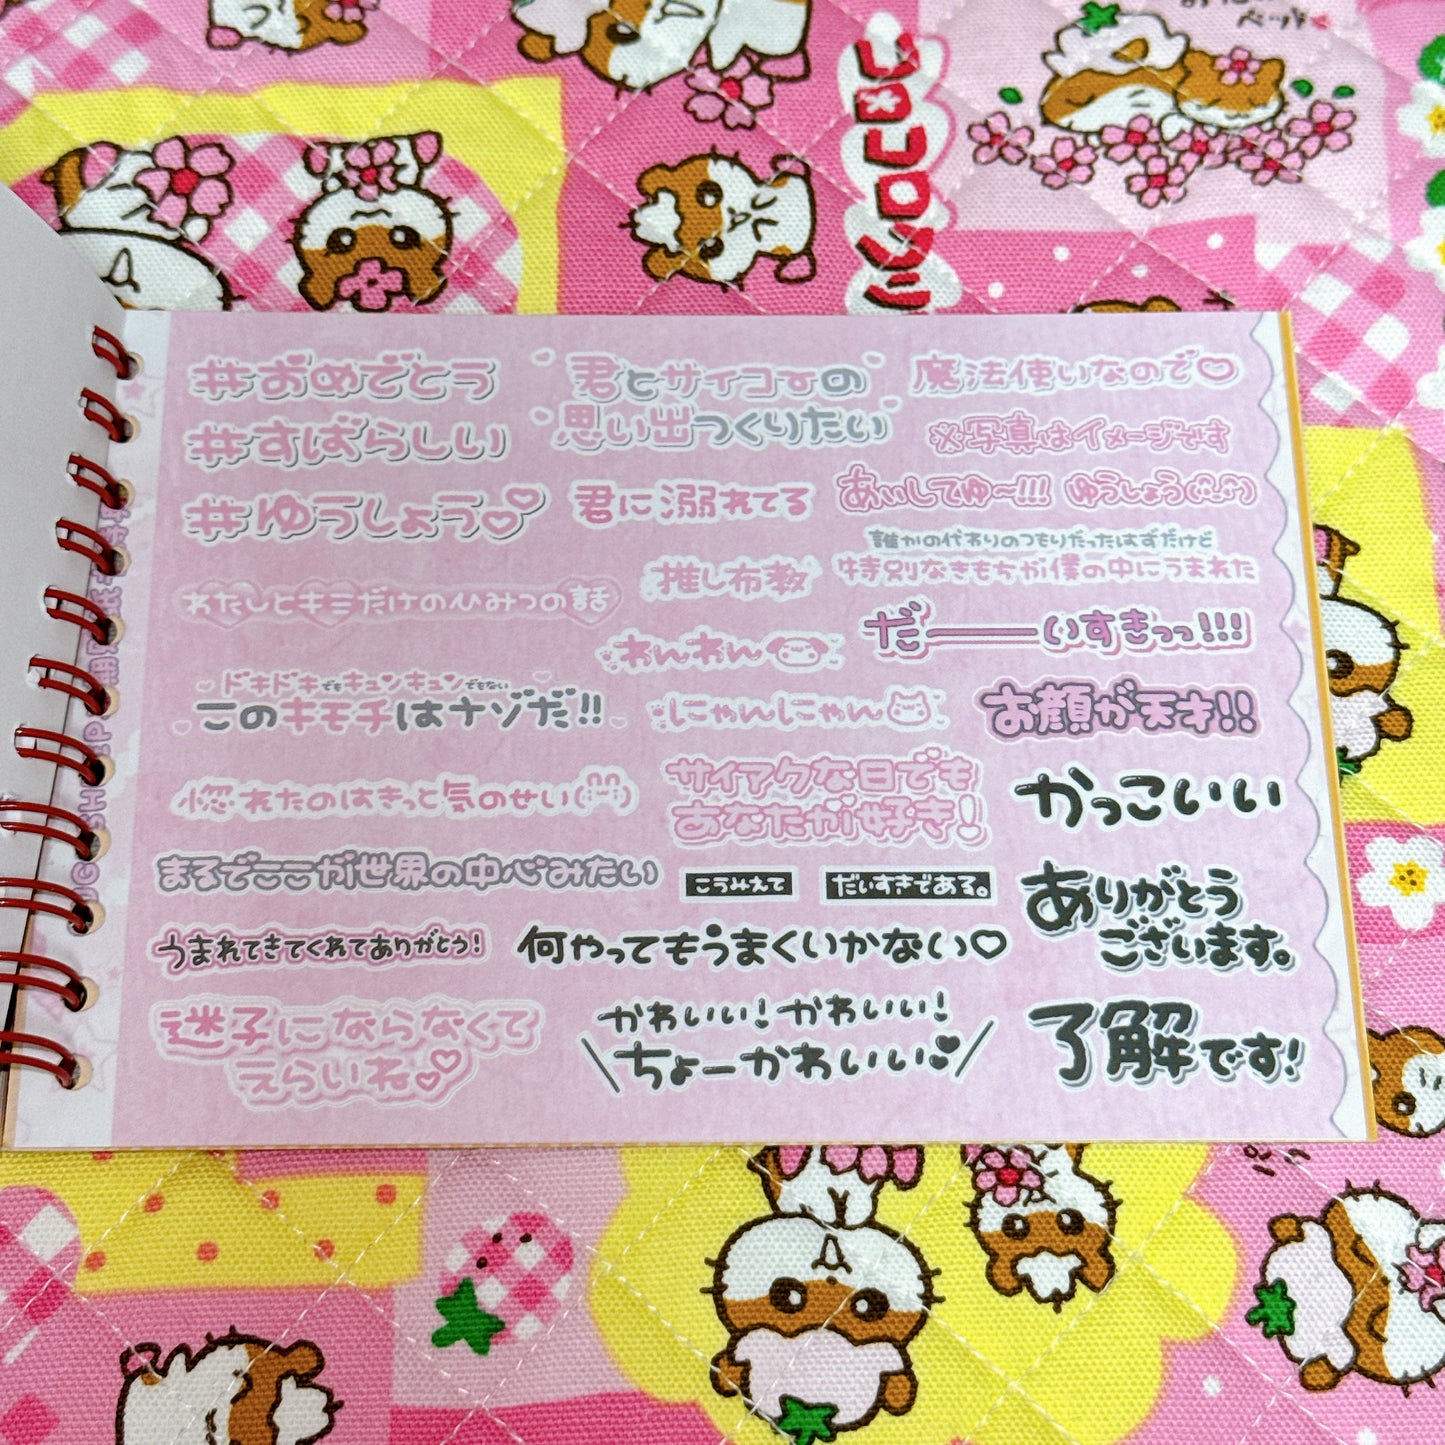 コロコロクリ
#おめでとう
#すばらしい
#ゆうしょう♡
わたしとキミだけのひみつの話
ドキドキでもキュンキュンでもない
このキモチはナゾだ!!
惚れたのはきっと気のせい
まるでここが世界の中心みたい
うまれてきてくれてありがとう!
迷子にならなくて
えらいね♡
君とサイコーの
思い出つくりたい
君に溺れてる
推し布教
わんわん
にゃんにゃん
サイアクな日でも
あなたが好き!
こうみえて
だいすきである。
何やってもうまくいかない♡
かわいい!かわいい!
\ちょーかわいい♥/
魔法使いなので♡
※写真はイメージです
あいしてゆ〜!!!
ゆうしょう
誰かの代わりのつもりだったはずだけど
特別なきもちが僕の中にうまれた
だ――いすきっっ!!!
お顔が天才!!
かっこいい
ありがとう
ございます。
了解です!